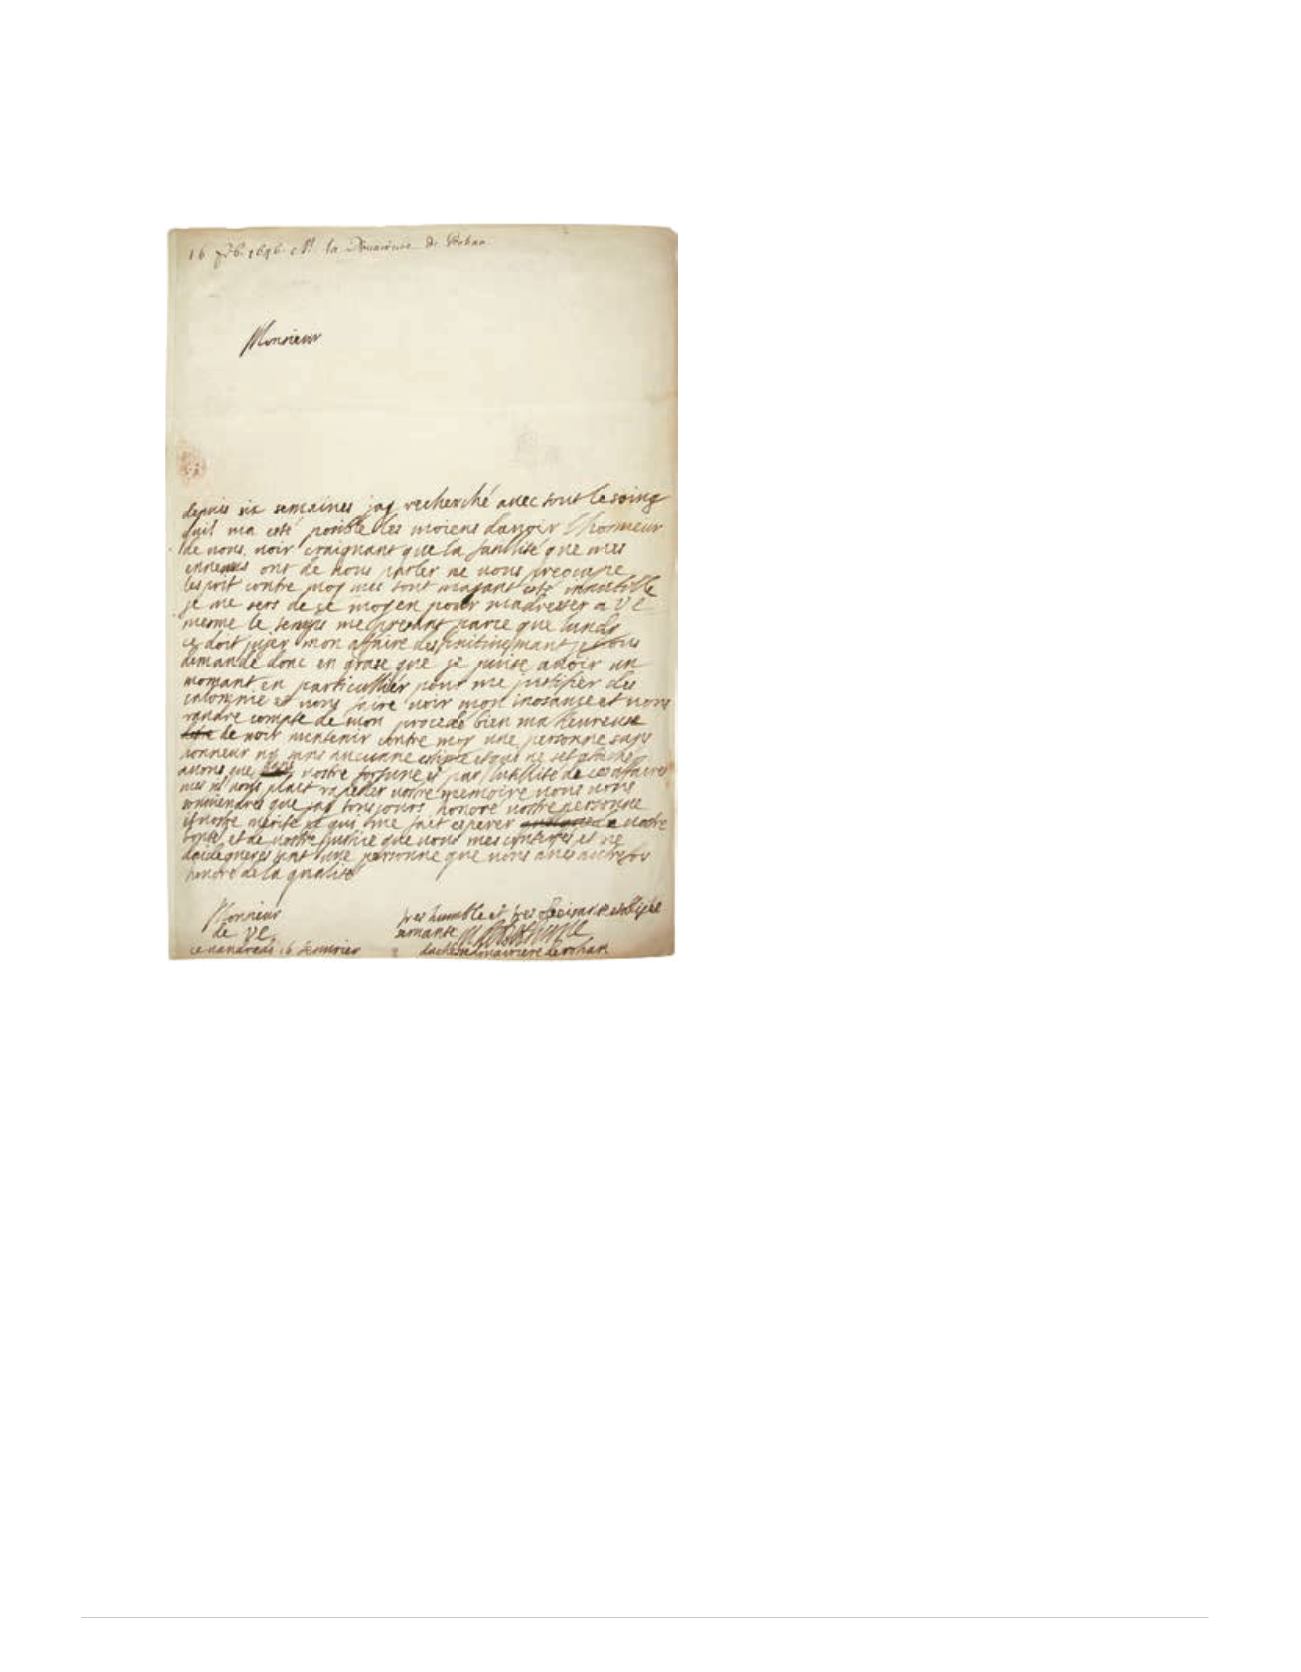 16 feb. 1646. Me la Douairiere de Rohan
Monsieur
depuis six semaines jay recherché avec tout le soing
quil ma esté posible les moiens davoir lhonneur
de vous voir craignant que la fasilité que mes
ennemis ont de vous parler ne vous preocupe
lesprit contre moy mes tout mayant esté innutille
je me sers de ce moyen pour madresser a VE
mesme le temps me presant parce que lundy
ce doit jujer mon affaire desfinitivemant je vous
demande donc en grase que je puise avoir un
momant en particullier pour me justifier des
calomnie et vous faire voir mon inosanse et vous
randre compte de mon procedé bien ma heureuse
de voir mentenir contre moy une personne sans
honneur ny sans aucunne estime et qui ne set atachée
a vous que vostre fortune et par lutillité de ces affaires
mes sil vous plait rapeller vostre memoire vous vous
souviendres que jay tousjours honoré vostre personne
et vostre merite ce qui me fait esperer de vostre
bonté et de vostre justice que vous et ne
une personne que vous aves autrefois
honoré de la qualité
Monsieur
de VE
tres humble et tres obeisante et obligée
servante
ce vandredi 16 feuvrier
duchesse douairiere de rohan